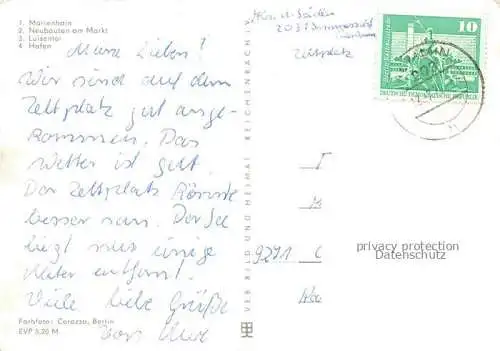 1. Marienhain
2. Neubauten am Markt
3. Luisental
4. Hafen
Meine Lieben!
Wir sind auf dem
Zeltplatz gut ange-
kommen. Das
Wetter ist gut.
Der Zeltplatz könnte
besser sein. Der See
liegt nur einige
Meter entfernt.
Viele liebe Grüße
von Uwe
Farbfoto: Corazza, Berlin
EVP 0,20 M
VEB BILD UND HEIMAT REICHENBACH
Zeltplatz
10
DEUTSCHE DEMOKRATISCHE REPUBLIK
9291
privacy protection
Datenschutz